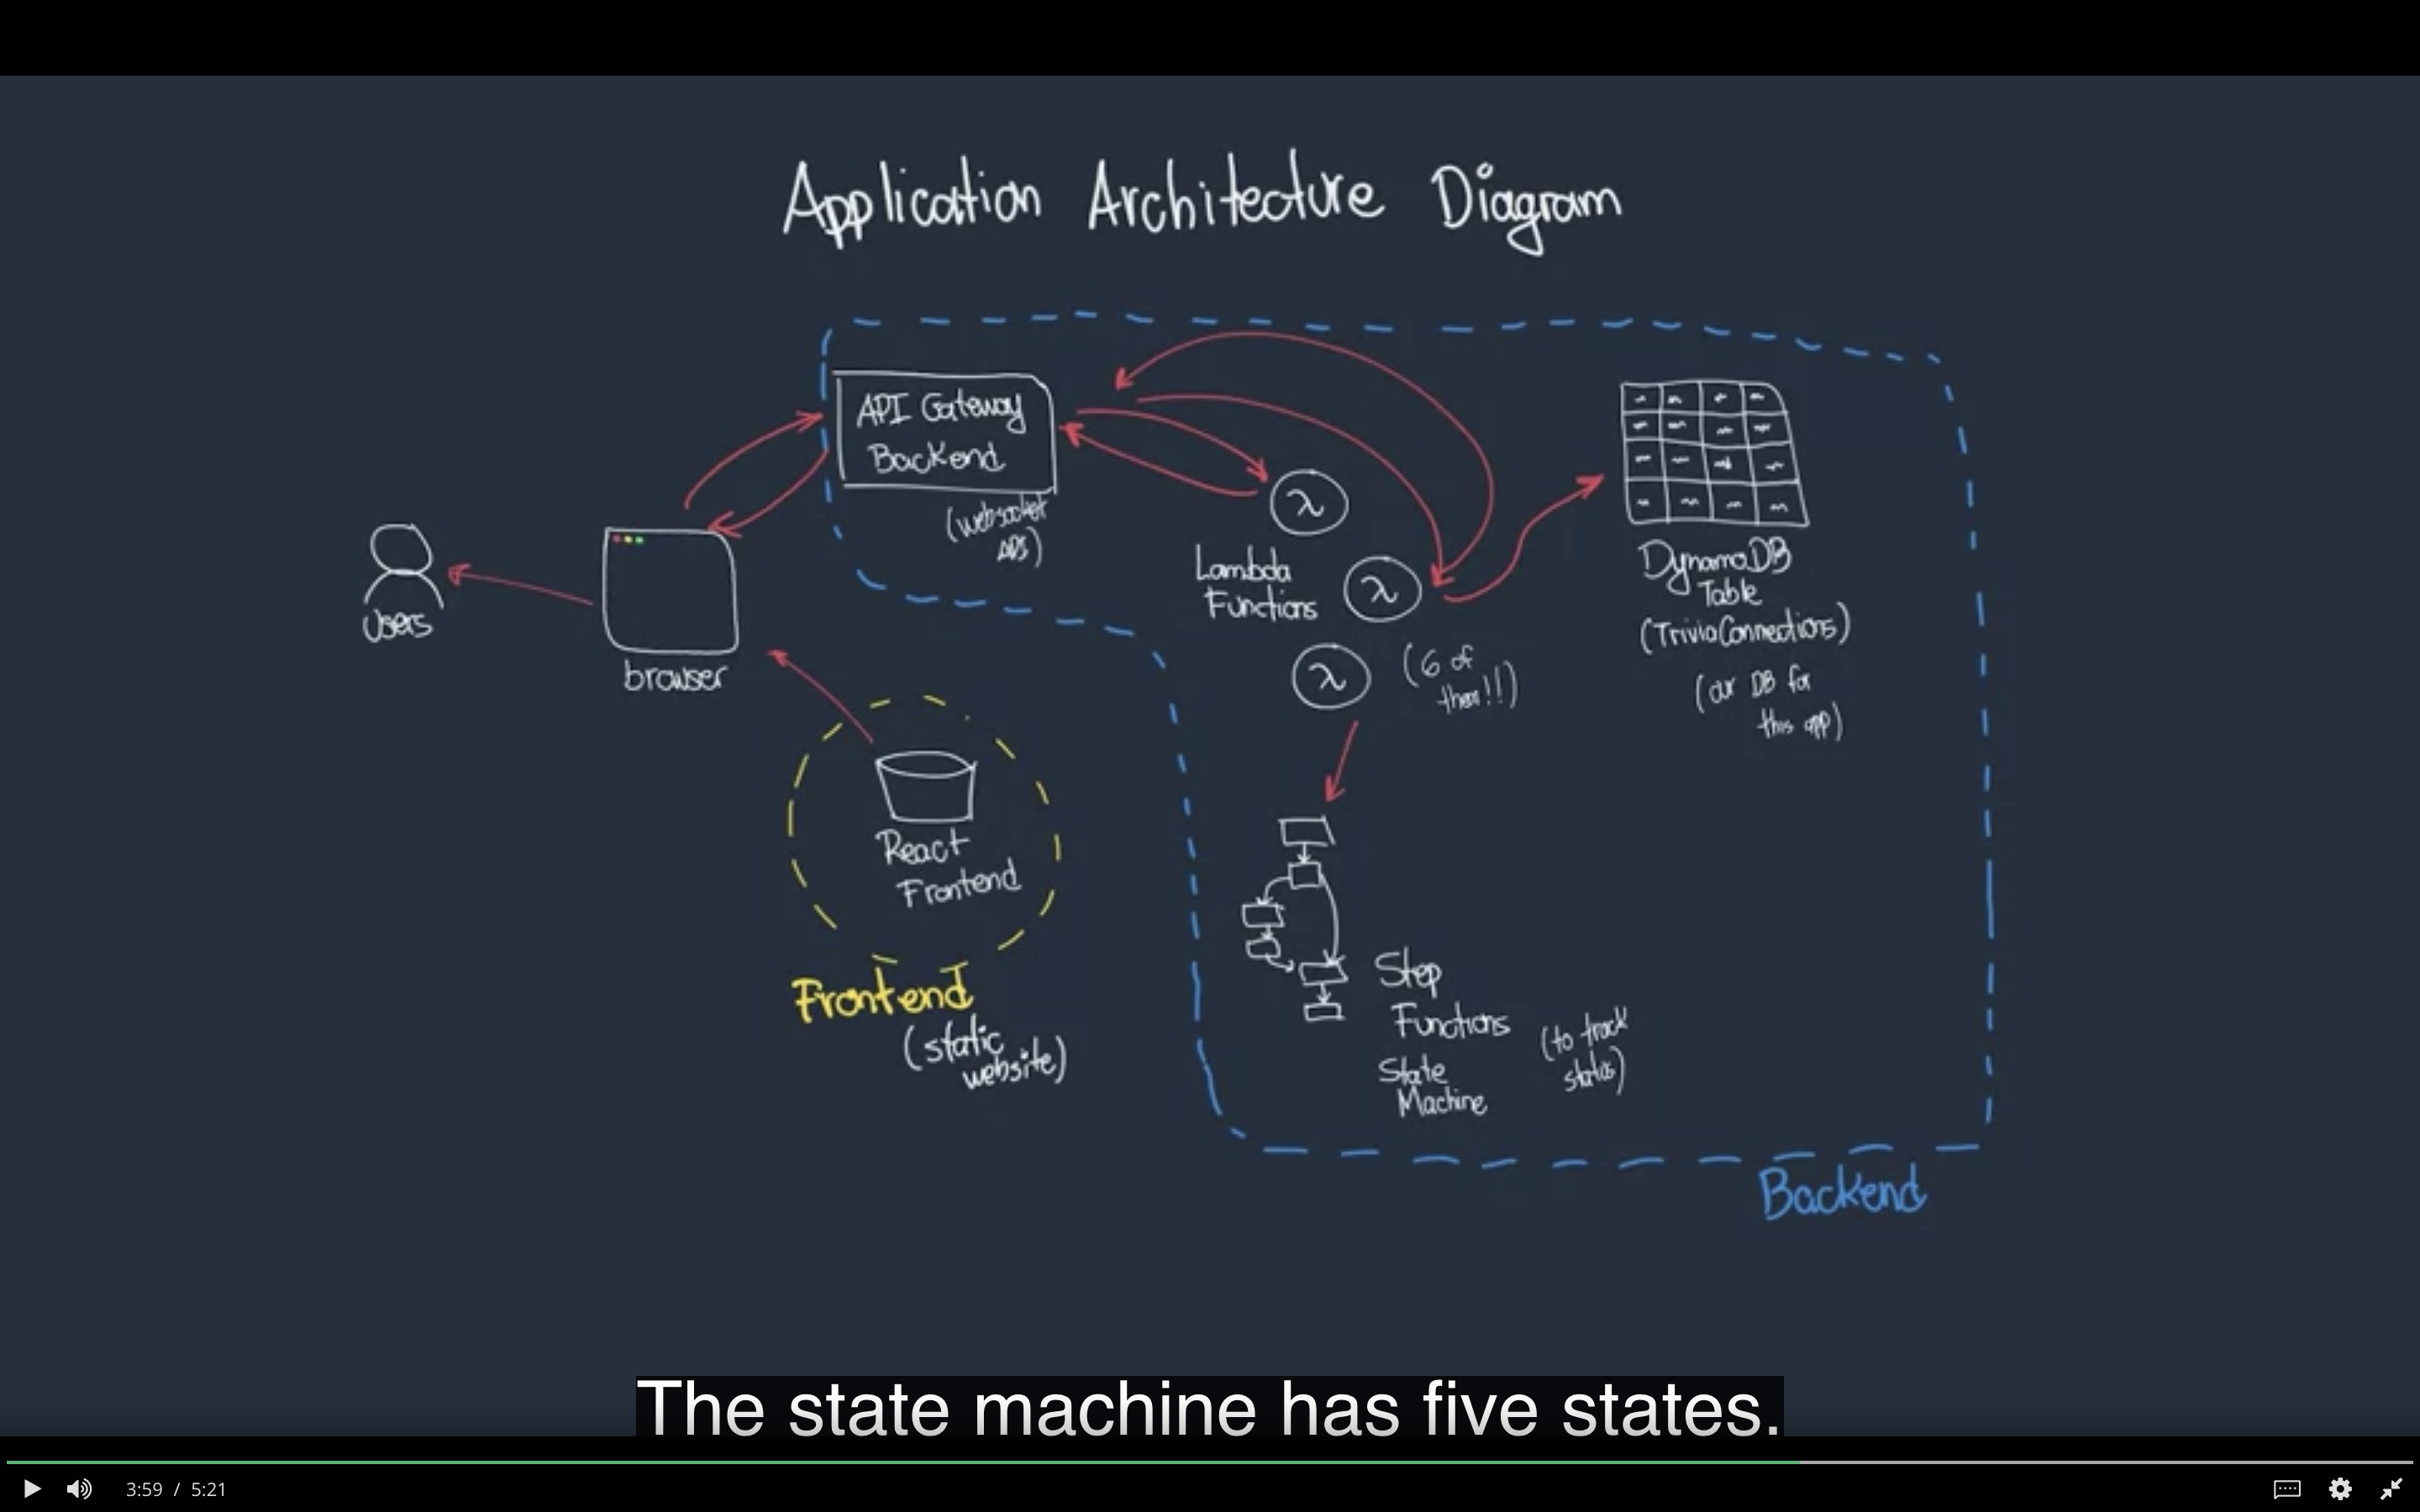 Application Architecture Diagram
API Gateway
Backend
(websocket
API)
Users
browser
λ
Lambda
Functions
λ
λ
(6 of
them!!)
DynamoDB
Table
(TriviaConnections)
(our DB for
this app)
React
Frontend
Frontend
(static
website)
Step
Functions
State
Machine
(to track
status)
Backend
The state machine has five states.
3:59 / 5:21